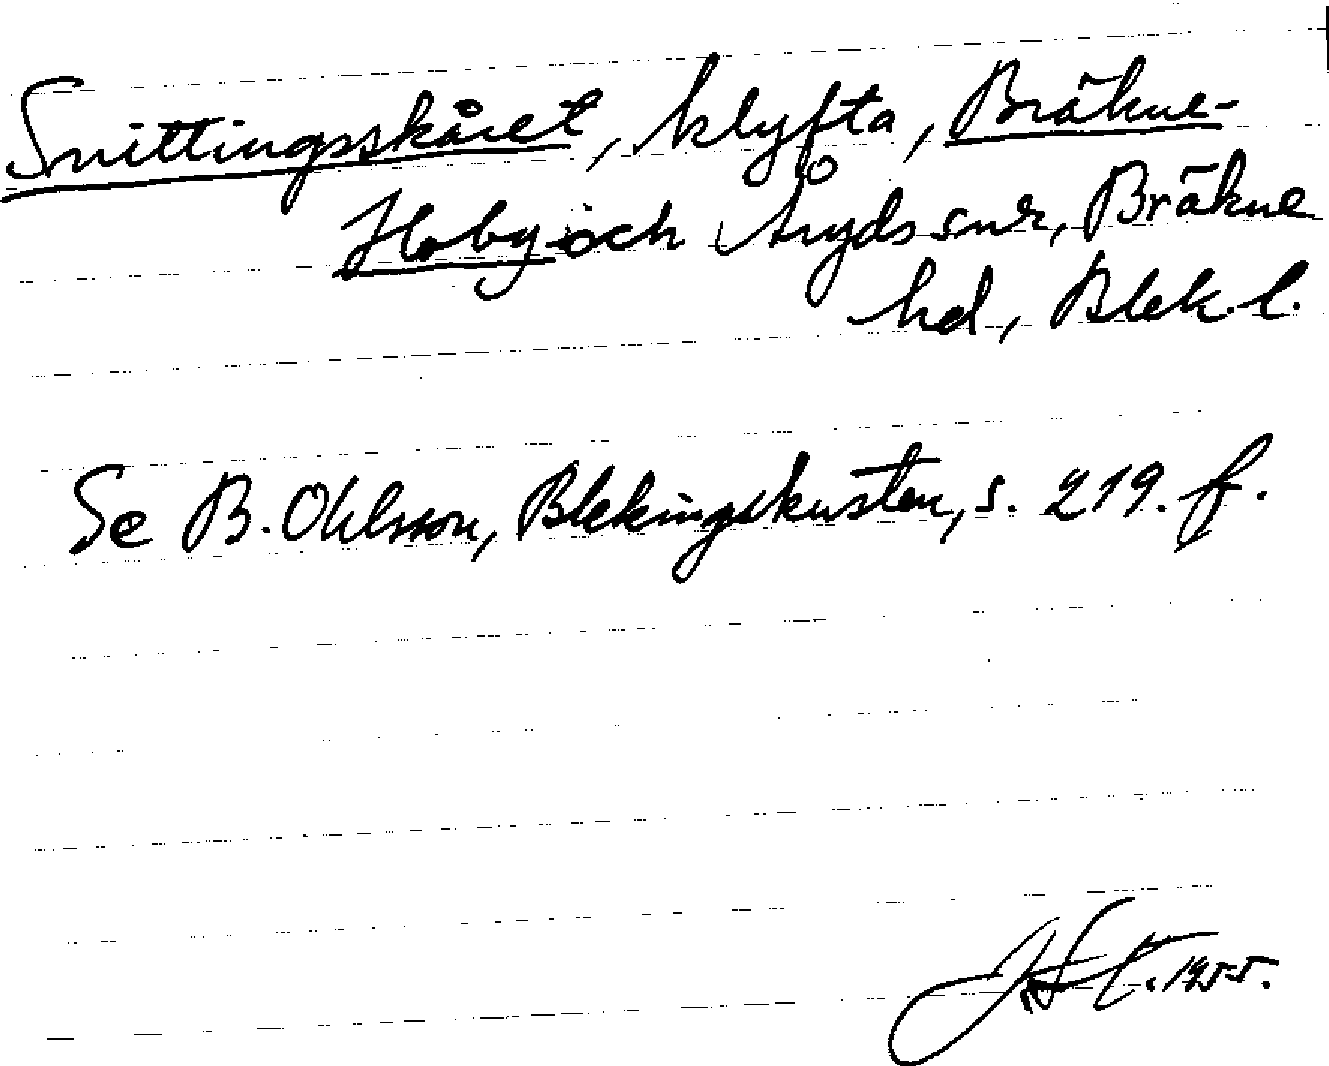 Snittingsskåret, klyfta, Bräkne-
Hoby och Åryds snr, Bräkne
hd, Blek. l.
Se B. Ohlsson, Blekingskusten, s. 219. f.
1955.